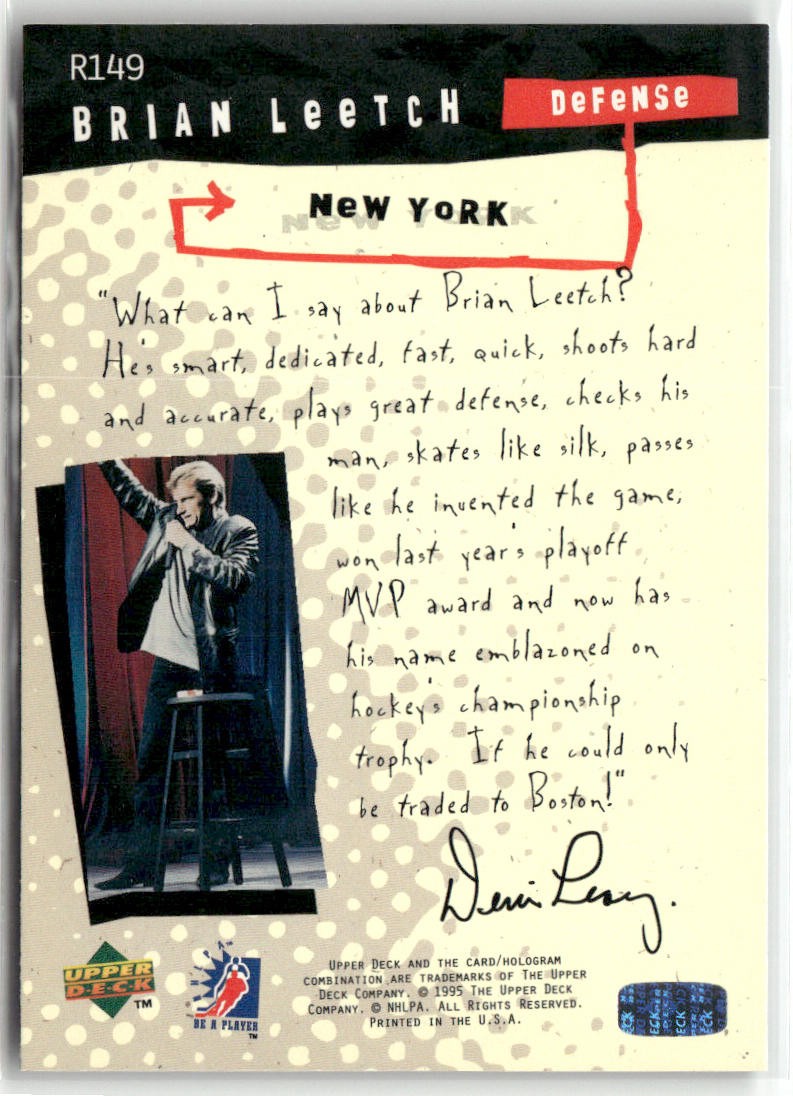 R149
BRIAN LeeTCH
DeFeNSe
NeW YoRK
"What can I say about Brian Leetch?
He's smart, dedicated, fast, quick, shoots hard
and accurate, plays great defense, checks his
man, skates like silk, passes
like he invented the game,
won last year's playoff
MVP award and now has
his name emblazoned on
hockey's championship
trophy. If he could only
be traded to Boston!"
Denis Leary.
UPPER
DECK
TM
NHLPA TM
BE A PLAYER
TM
UPPER DECK AND THE CARD/HOLOGRAM
COMBINATION ARE TRADEMARKS OF THE UPPER
DECK COMPANY. © 1995 THE UPPER DECK
COMPANY. © NHLPA. ALL RIGHTS RESERVED.
PRINTED IN THE U.S.A.